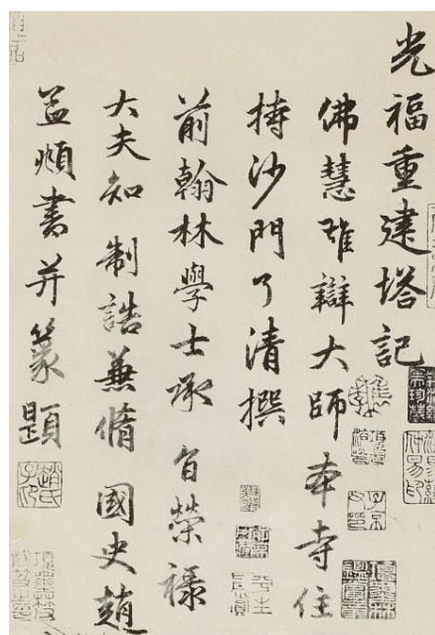 光福重建塔記
佛慧雄辯大師本寺住
持沙門了清撰
前翰林學士承旨榮祿
大夫知制誥兼脩國史趙
孟頫書并篆題